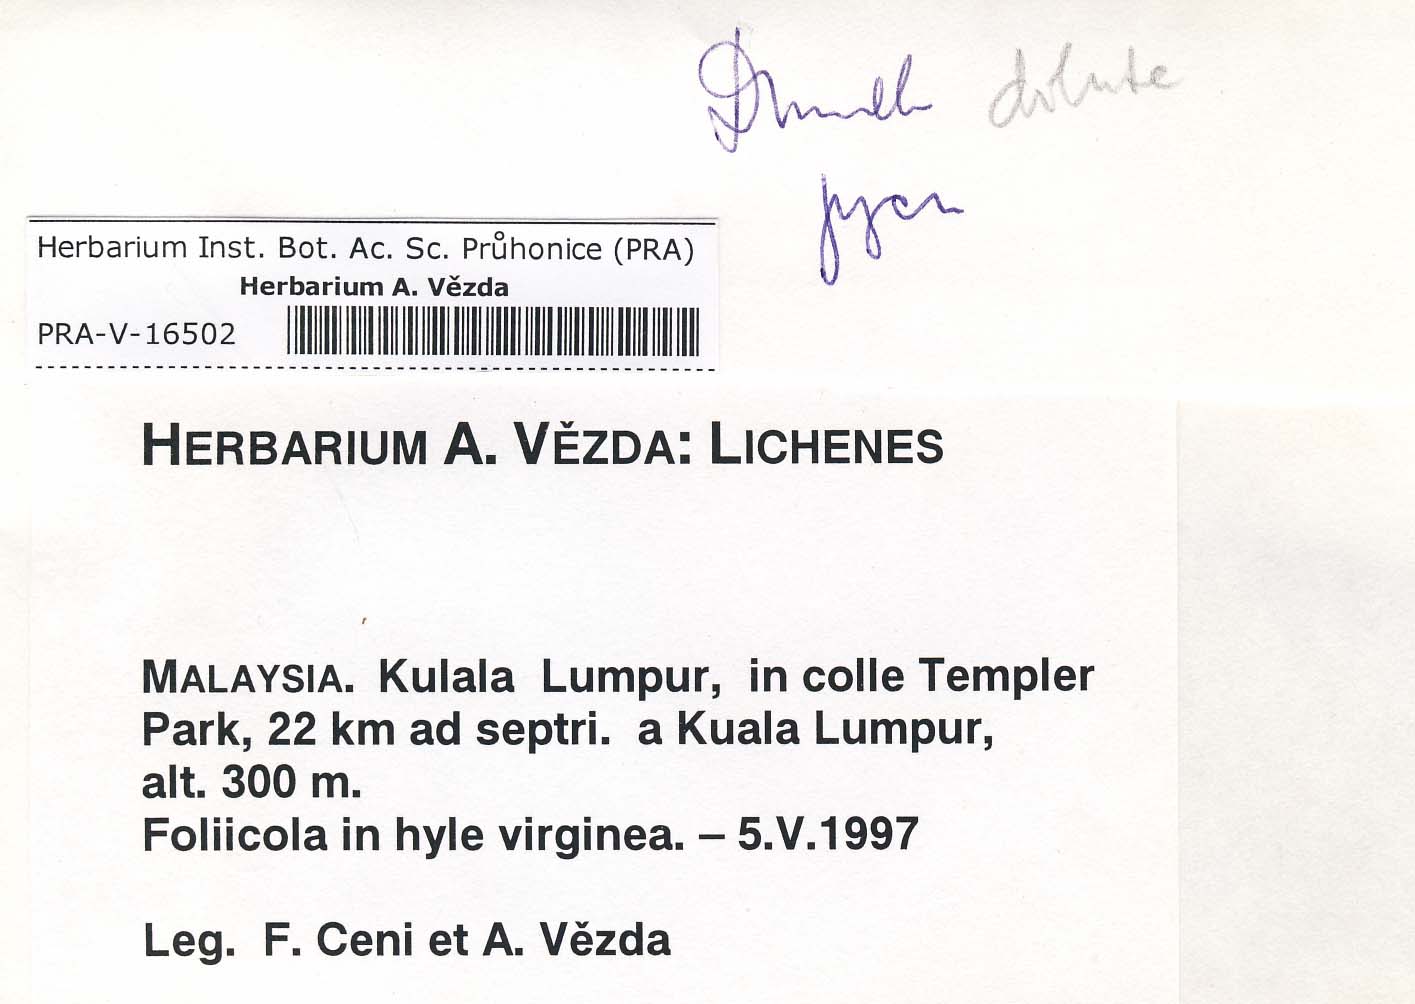 Herbarium Inst. Bot. Ac. Sc. Průhonice (PRA)
Herbarium A. Vězda
PRA-V-16502
HERBARIUM A. VĚZDA: LICHENES
MALAYSIA. Kulala Lumpur, in colle Templer
Park, 22 km ad septri. a Kuala Lumpur,
alt. 300 m.
Foliicola in hyle virginea. – 5.V.1997
Leg. F. Ceni et A. Vězda